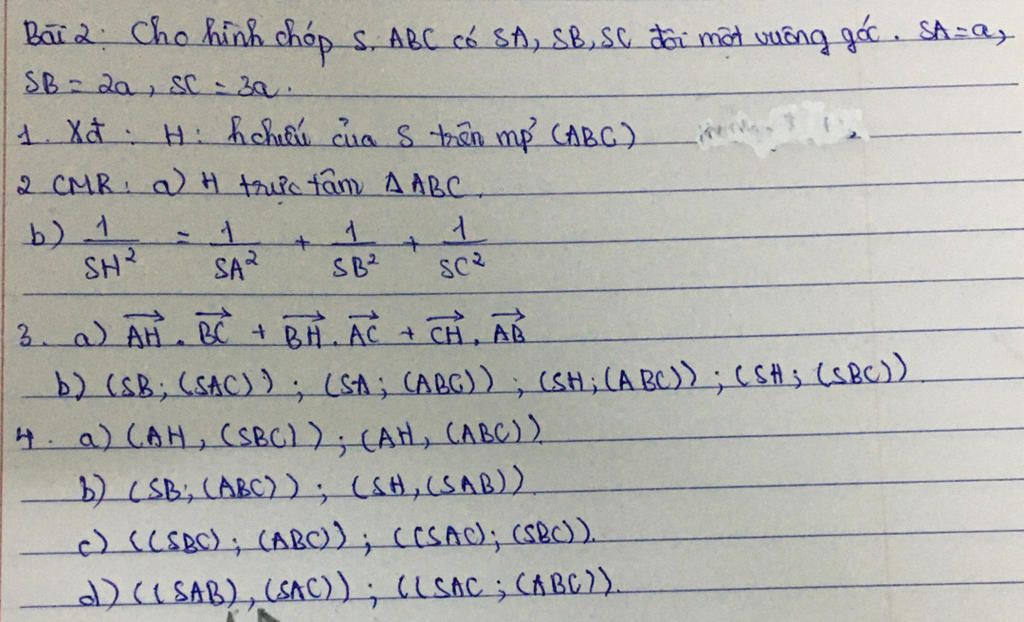 Bài 2: Cho hình chóp S. ABC có SA, SB, SC đôi một vuông góc. SA = a,
SB = 2a, SC = 3a.
1. Xđ: H: hchiếu của S trên mp' (ABC)
2 CMR: a) H trực tâm ΔABC.
b) 1/SH² = 1/SA² + 1/SB² + 1/SC²
3. a) \overrightarrow{AH} . \overrightarrow{BC} + \overrightarrow{BH} . \overrightarrow{AC} + \overrightarrow{CH} . \overrightarrow{AB}
b) (SB; (SAC)); (SA; (ABC)); (SH; (ABC)); (SH; (SBC))
4. a) (AH, (SBC)); (AH, (ABC))
b) (SB; (ABC)); (SH, (SAB))
c) ((SBC); (ABC)); ((SAC); (SBC)).
d) ((SAB), (SAC)); ((SAC; (ABC)).